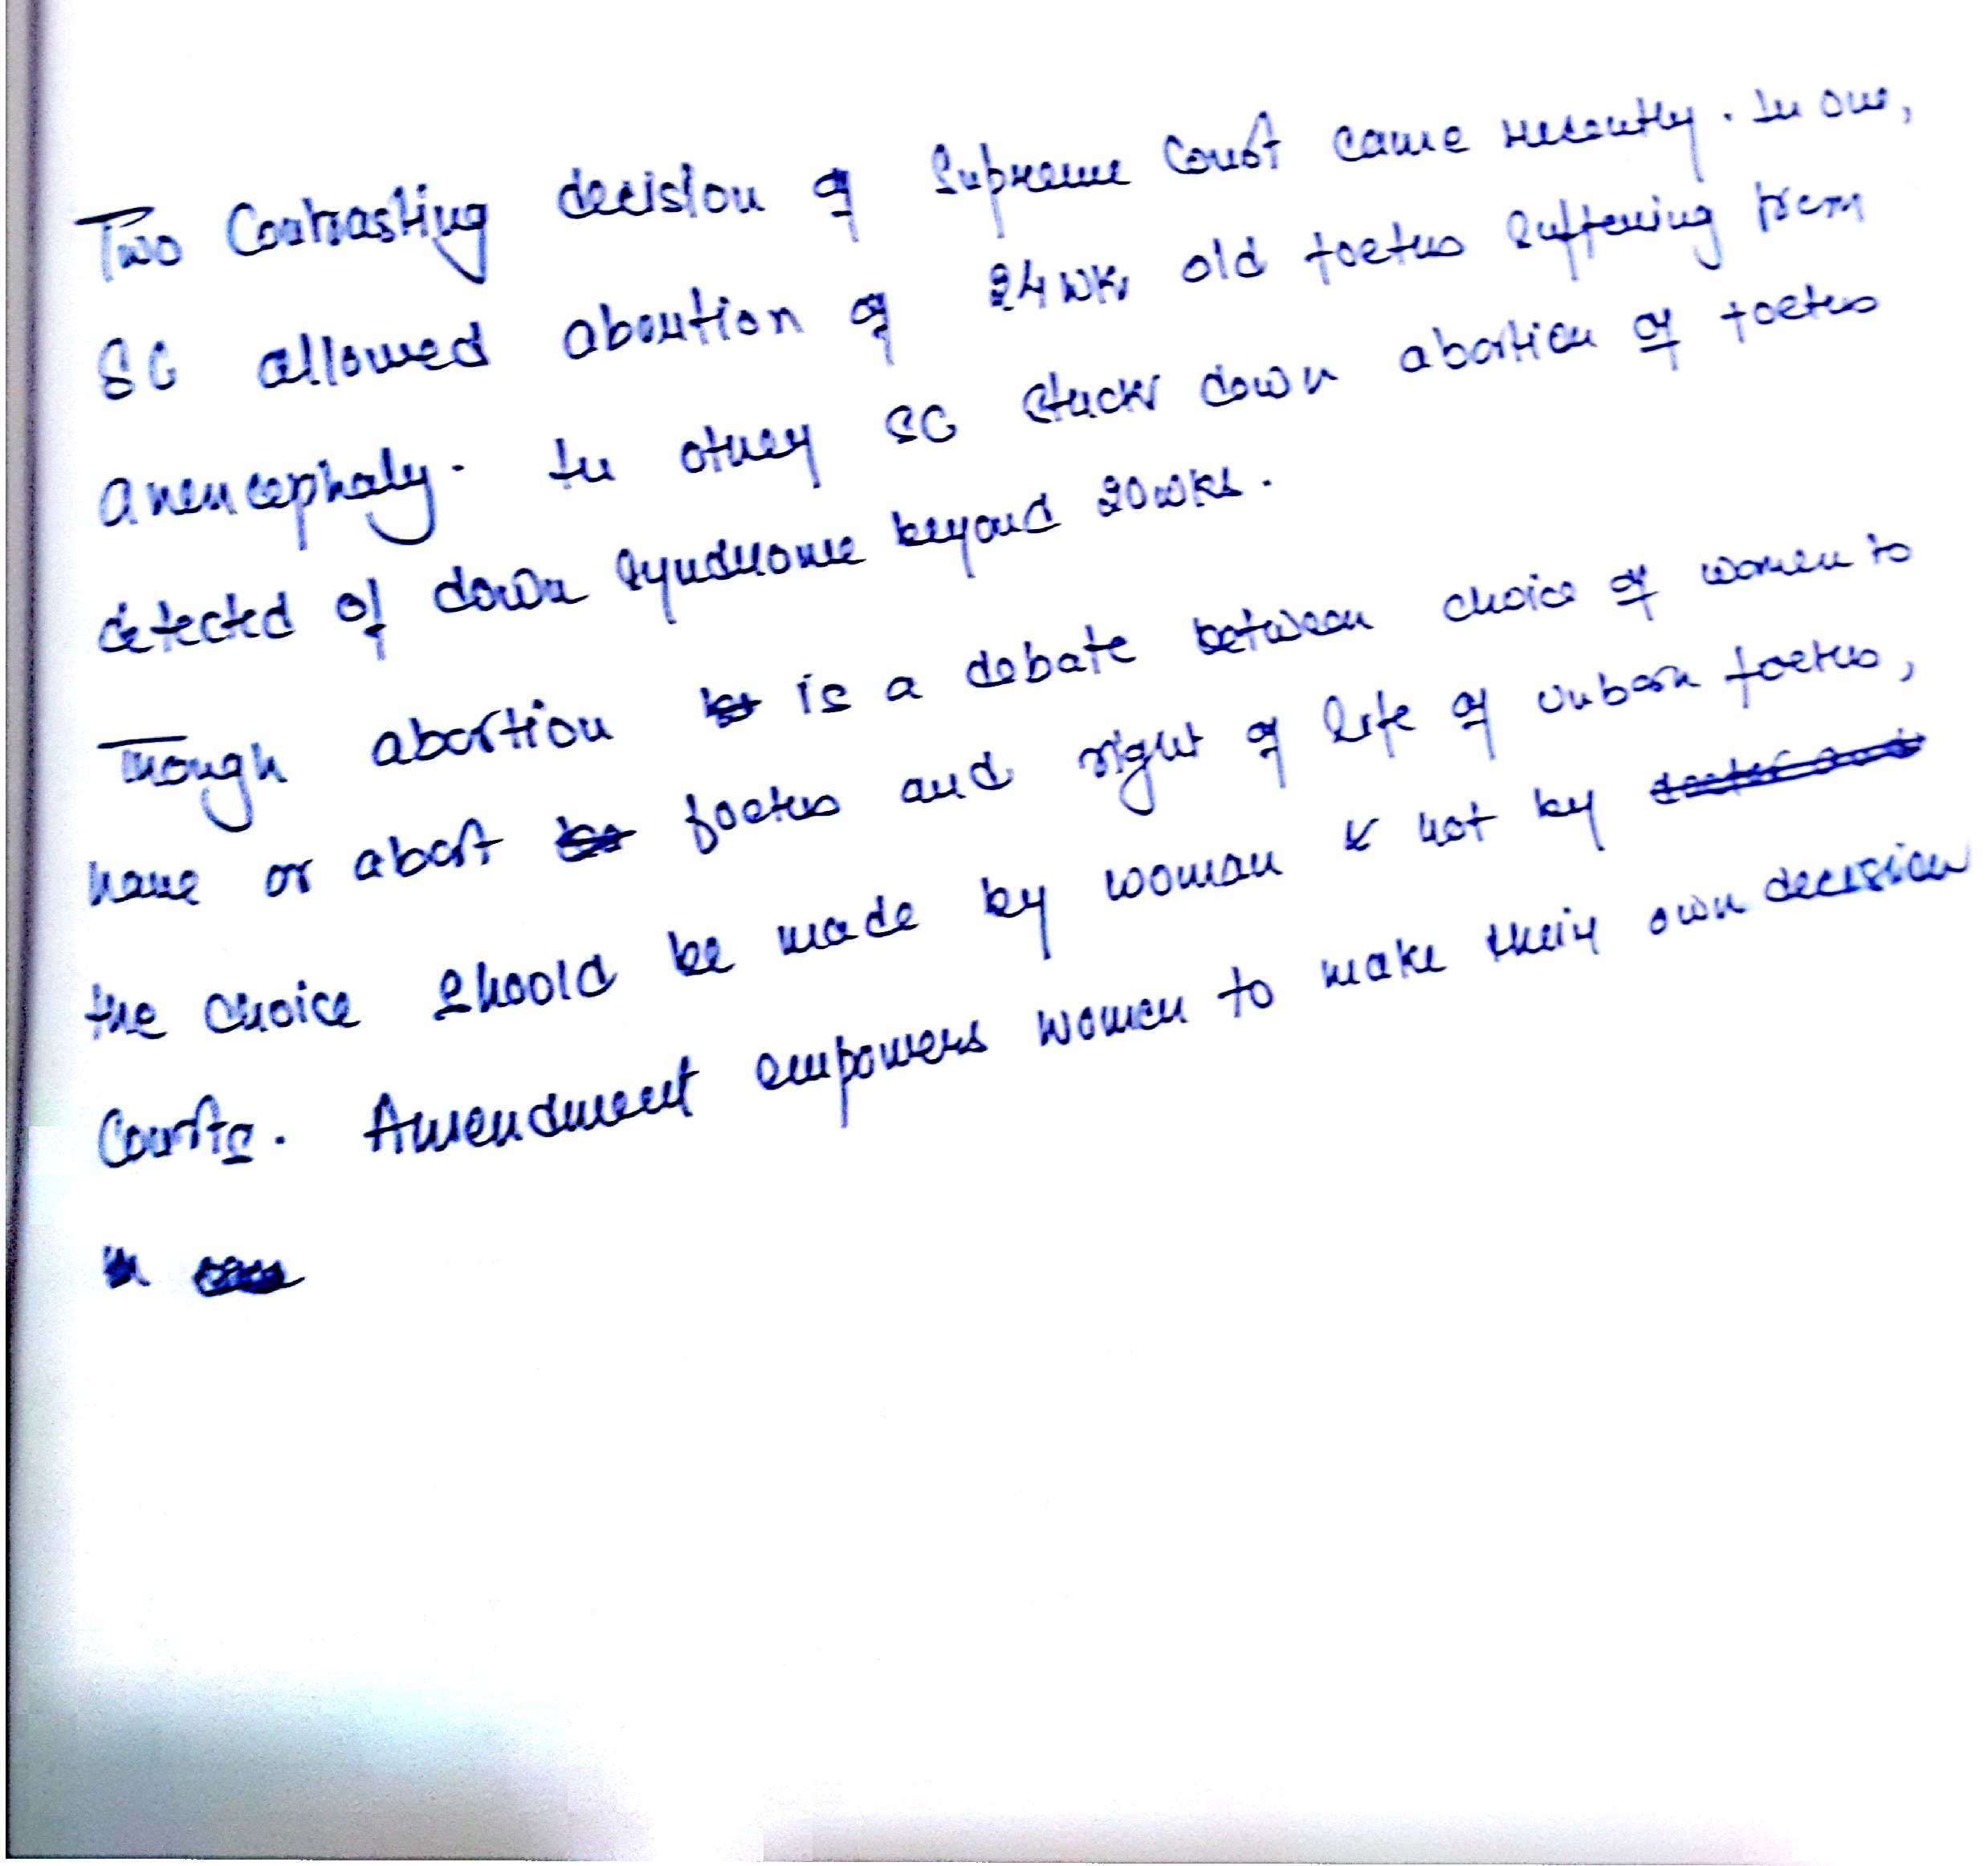 Two Contrasting decision of Supreme Court came recently. In one,
SC allowed abortion of 24 wk old foetus suffering from
anencephaly. In other SC stuck down abortion of foetus
detected of down syndrome beyond 20 wks.
Though abortion is a debate between choice of women to
have or abort foetus and right of life of unborn foetus,
the choice should be made by woman & not by
Courts. Amendment empowers women to make their own decision